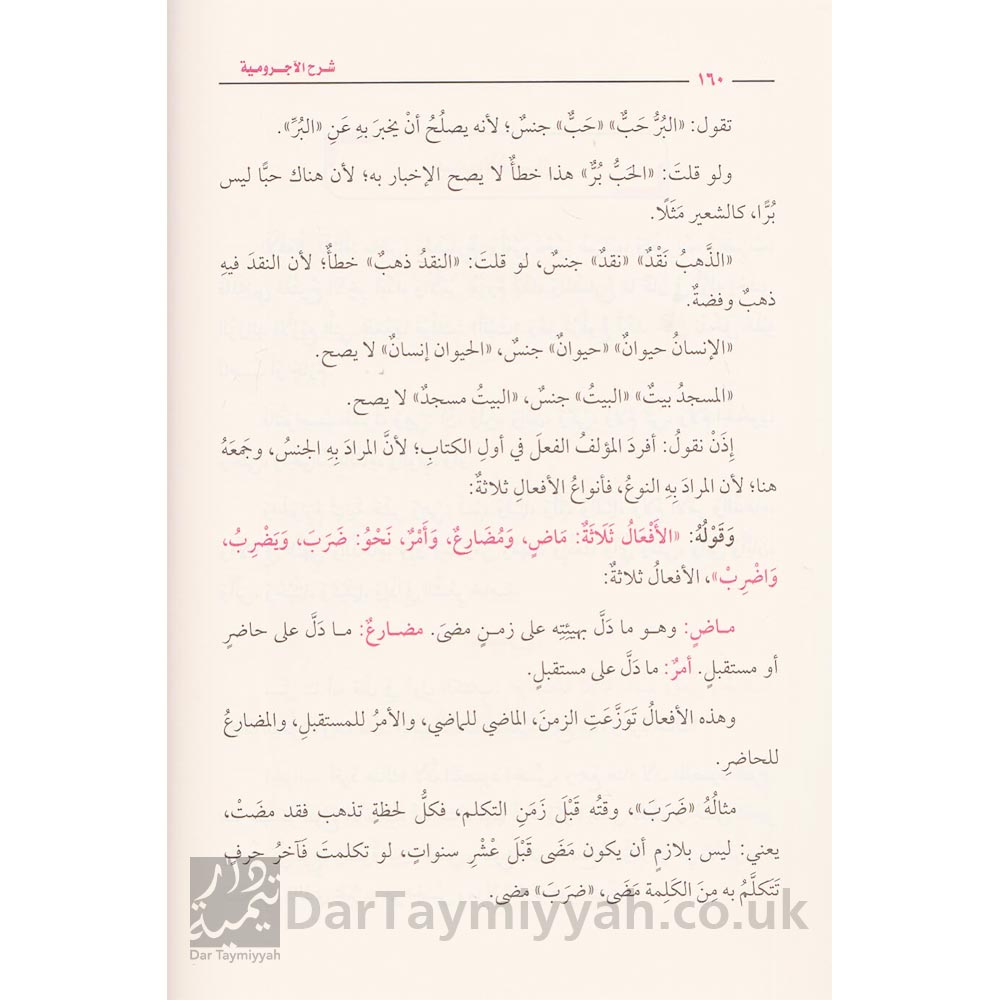 شرح الآجرومية
١٦٠
تقول: «البُرُّ حَبٌّ» «حَبٌّ» جنسٌ؛ لأنه يصلُحُ أنْ يخبرَ بهِ عَنِ «البُرِّ».
ولو قلتَ: «الحَبُّ بُرٌّ» هذا خطأٌ لا يصح الإخبار به؛ لأن هناك حبًّا ليس
بُرًّا، كالشعير مَثَلًا.
«الذَّهبُ نَقْدٌ» «نقدٌ» جنسٌ، لو قلتَ: «النقدُ ذهبٌ» خطأٌ؛ لأن النقدَ فيهِ
ذهبٌ وفضةٌ.
«الإنسانُ حيوانٌ» «حيوانٌ» جنسٌ، «الحيوان إنسانٌ» لا يصح.
«المسجدُ بيتٌ» «البيتُ» جنسٌ، «البيتُ مسجدٌ» لا يصح.
إِذَنْ نقولُ: أفردَ المؤلفُ الفعلَ في أولِ الكتابِ؛ لأنَّ المرادَ بِهِ الجنسُ، وجَمَعَهُ
هنا؛ لأن المرادَ بِهِ النوعُ، فأنواعُ الأفعالِ ثلاثةٌ:
وَقَوْلُهُ: «الأَفْعَالُ ثَلَاثَةٌ: مَاضٍ، وَمُضَارِعٌ، وَأَمْرٌ، نَحْوُ: ضَرَبَ، وَيَضْرِبُ،
وَاضْرِبْ»، الأفعالُ ثلاثةٌ:
مـاضٍ: وهـو ما دَلَّ بهيئتِه على زمـنٍ مضىَ. مضـارعٌ: مـا دَلَّ على حاضرٍ
أو مستقبلٍ. أمرٌ: ما دَلَّ على مستقبلٍ.
وهذه الأفعالُ تَوَزَّعَتِ الزمنَ، الماضي للماضي، والأمرُ للمستقبلِ، والمضارعُ
للحاضرِ.
مثالُهُ «ضَرَبَ»، وقتُه قَبْلَ زَمَنِ التكلم، فكلُّ لحظةٍ تذهب فقد مضَتْ،
يعني: ليس بلازمٍ أن يكون مَضَى قَبْلَ عْشْرِ سنواتٍ، لو تكلمتَ فَآخرُ حرفٍ
تَتَكلَّمُ به مِنَ الكَلِمة مَضَى، «ضرَبَ» مضى.
دار تيمية
Dar Taymiyyah
DarTaymiyyah.co.uk